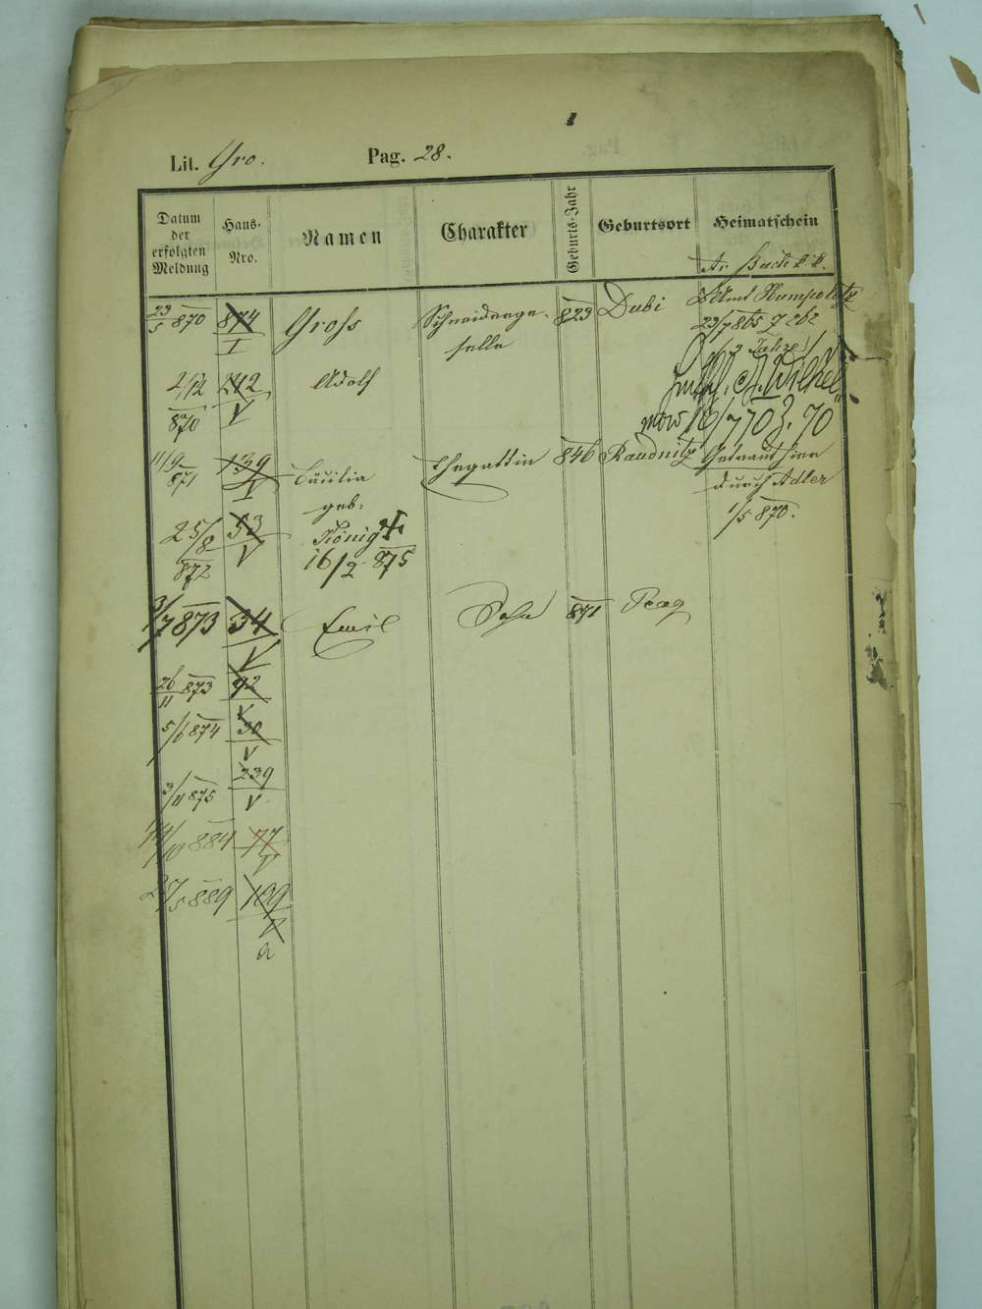 Lit. Gro.
Pag. 28.
Datum der erfolgten Meldung
Haus-Nro.
Namen
Charakter
Geburts-Jahr
Geburtsort
Heimatschein
23/5 870 874/I Gross Schneiderge- 823 Dubi
selle
Amt Humpoletz
23/7 865
2/12 870 242/V Adolf
A. Wilhel
mow 16/7 70 Z. 70
11/9 871 139/I Cäcilia Ehegattin 846 Raudnitz
geb.
durch Adler
1/5 870.
25/8 872 53/V König
16/2 875
3/7 873 34/V Emil Sohn 871 Prag
26/11 873 92/V
5/6 874 30/V
3/11 875 239/V
14/10 884 77
27/5 889 109
a